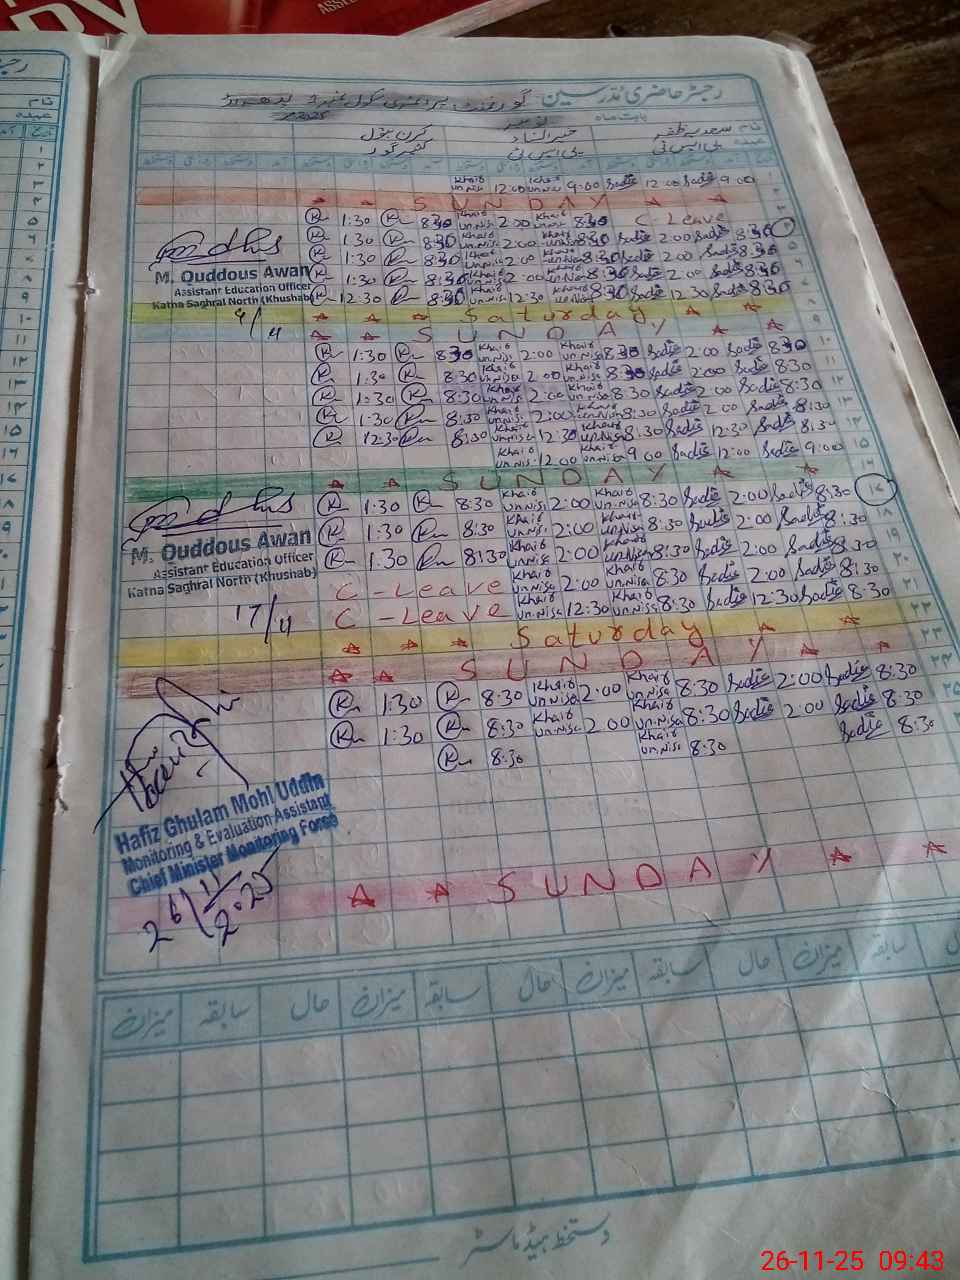 رجسٹر حاضری مُدرسین گورنمنٹ پرائمری سکول نمبر
بابت ماہ نومبر 2025
نام سعدیہ ظفر خیر النساء کرن بتول
عہدہ پی ایس ٹی پی ایس ٹی کیئر گور
Khair un.Nisa 12:00 Khair un.Nisa 9:00 Sadia 12:00 Sadia 9:00
SUNDAY
K 1:30 K 8:30 Khair un.Nisa 2:00 Khair un.Nisa 8:30 C-Leave
K 1:30 K 8:30 Khair un.Nisa 2:00 Khair un.Nisa 8:30 Sadia 2:00 Sadia 8:30
K 1:30 K 8:30 Khair un.Nisa 2:00 Khair un.Nisa 8:30 Sadia 2:00 Sadia 8:30
K 1:30 K 8:30 Khair un.Nisa 2:00 Khair un.Nisa 8:30 Sadia 2:00 Sadia 8:30
K 12:30 K 8:30 Khair un.Nisa 12:30 Khair un.Nisa 8:30 Sadia 12:30 Sadia 8:30
M. Quddous Awan
Assistant Education Officer
Katha Saghral North (Khushab)
Saturday
SUNDAY
K 1:30 K 8:30 Khair un.Nisa 2:00 Khair un.Nisa 8:30 Sadia 2:00 Sadia 8:30
K 1:30 K 8:30 Khair un.Nisa 2:00 Khair un.Nisa 8:30 Sadia 2:00 Sadia 8:30
K 1:30 K 8:30 Khair un.Nisa 2:00 Khair un.Nisa 8:30 Sadia 2:00 Sadia 8:30
K 1:30 K 8:30 Khair un.Nisa 2:00 Khair un.Nisa 8:30 Sadia 2:00 Sadia 8:30
K 12:30 K 8:30 Khair un.Nisa 12:30 Khair un.Nisa 8:30 Sadia 12:30 Sadia 8:30
Khair un.Nisa 12:00 Khair un.Nisa 9:00 Sadia 12:00 Sadia 9:00
SUNDAY
K 1:30 K 8:30 Khair un.Nisa 2:00 Khair un.Nisa 8:30 Sadia 2:00 Sadia 8:30
K 1:30 K 8:30 Khair un.Nisa 2:00 Khair un.Nisa 8:30 Sadia 2:00 Sadia 8:30
K 1:30 K 8:30 Khair un.Nisa 2:00 Khair un.Nisa 8:30 Sadia 2:00 Sadia 8:30
C-Leave Khair un.Nisa 2:00 Khair un.Nisa 8:30 Sadia 2:00 Sadia 8:30
C-Leave Khair un.Nisa 12:30 Khair un.Nisa 8:30 Sadia 12:30 Sadia 8:30
M. Quddous Awan
Assistant Education Officer
Katha Saghral North (Khushab)
17/11
Saturday
SUNDAY
K 1:30 K 8:30 Khair un.Nisa 2:00 Khair un.Nisa 8:30 Sadia 2:00 Sadia 8:30
K 1:30 K 8:30 Khair un.Nisa 2:00 Khair un.Nisa 8:30 Sadia 2:00 Sadia 8:30
K 8:30 Khair un.Nisa 8:30 Sadia 8:30
Hafiz Ghulam Mohi Uddin
Monitoring & Evaluation Assistant
Chief Minister Monitoring Force
26/11/2025
SUNDAY
حال میزان سابقہ حال میزان سابقہ حال میزان سابقہ حال سابقہ میزان
دستخط ہیڈ ماسٹر
26-11-25 09:43